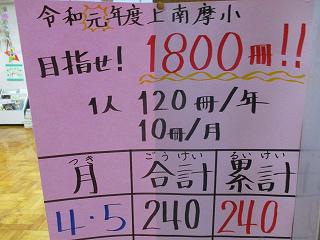 令和元年度上南摩小
目指せ! 1800冊!!
1人 120冊/年
10冊/月
つき ごうけい るいけい
月 合計 累計
4・5 240 240